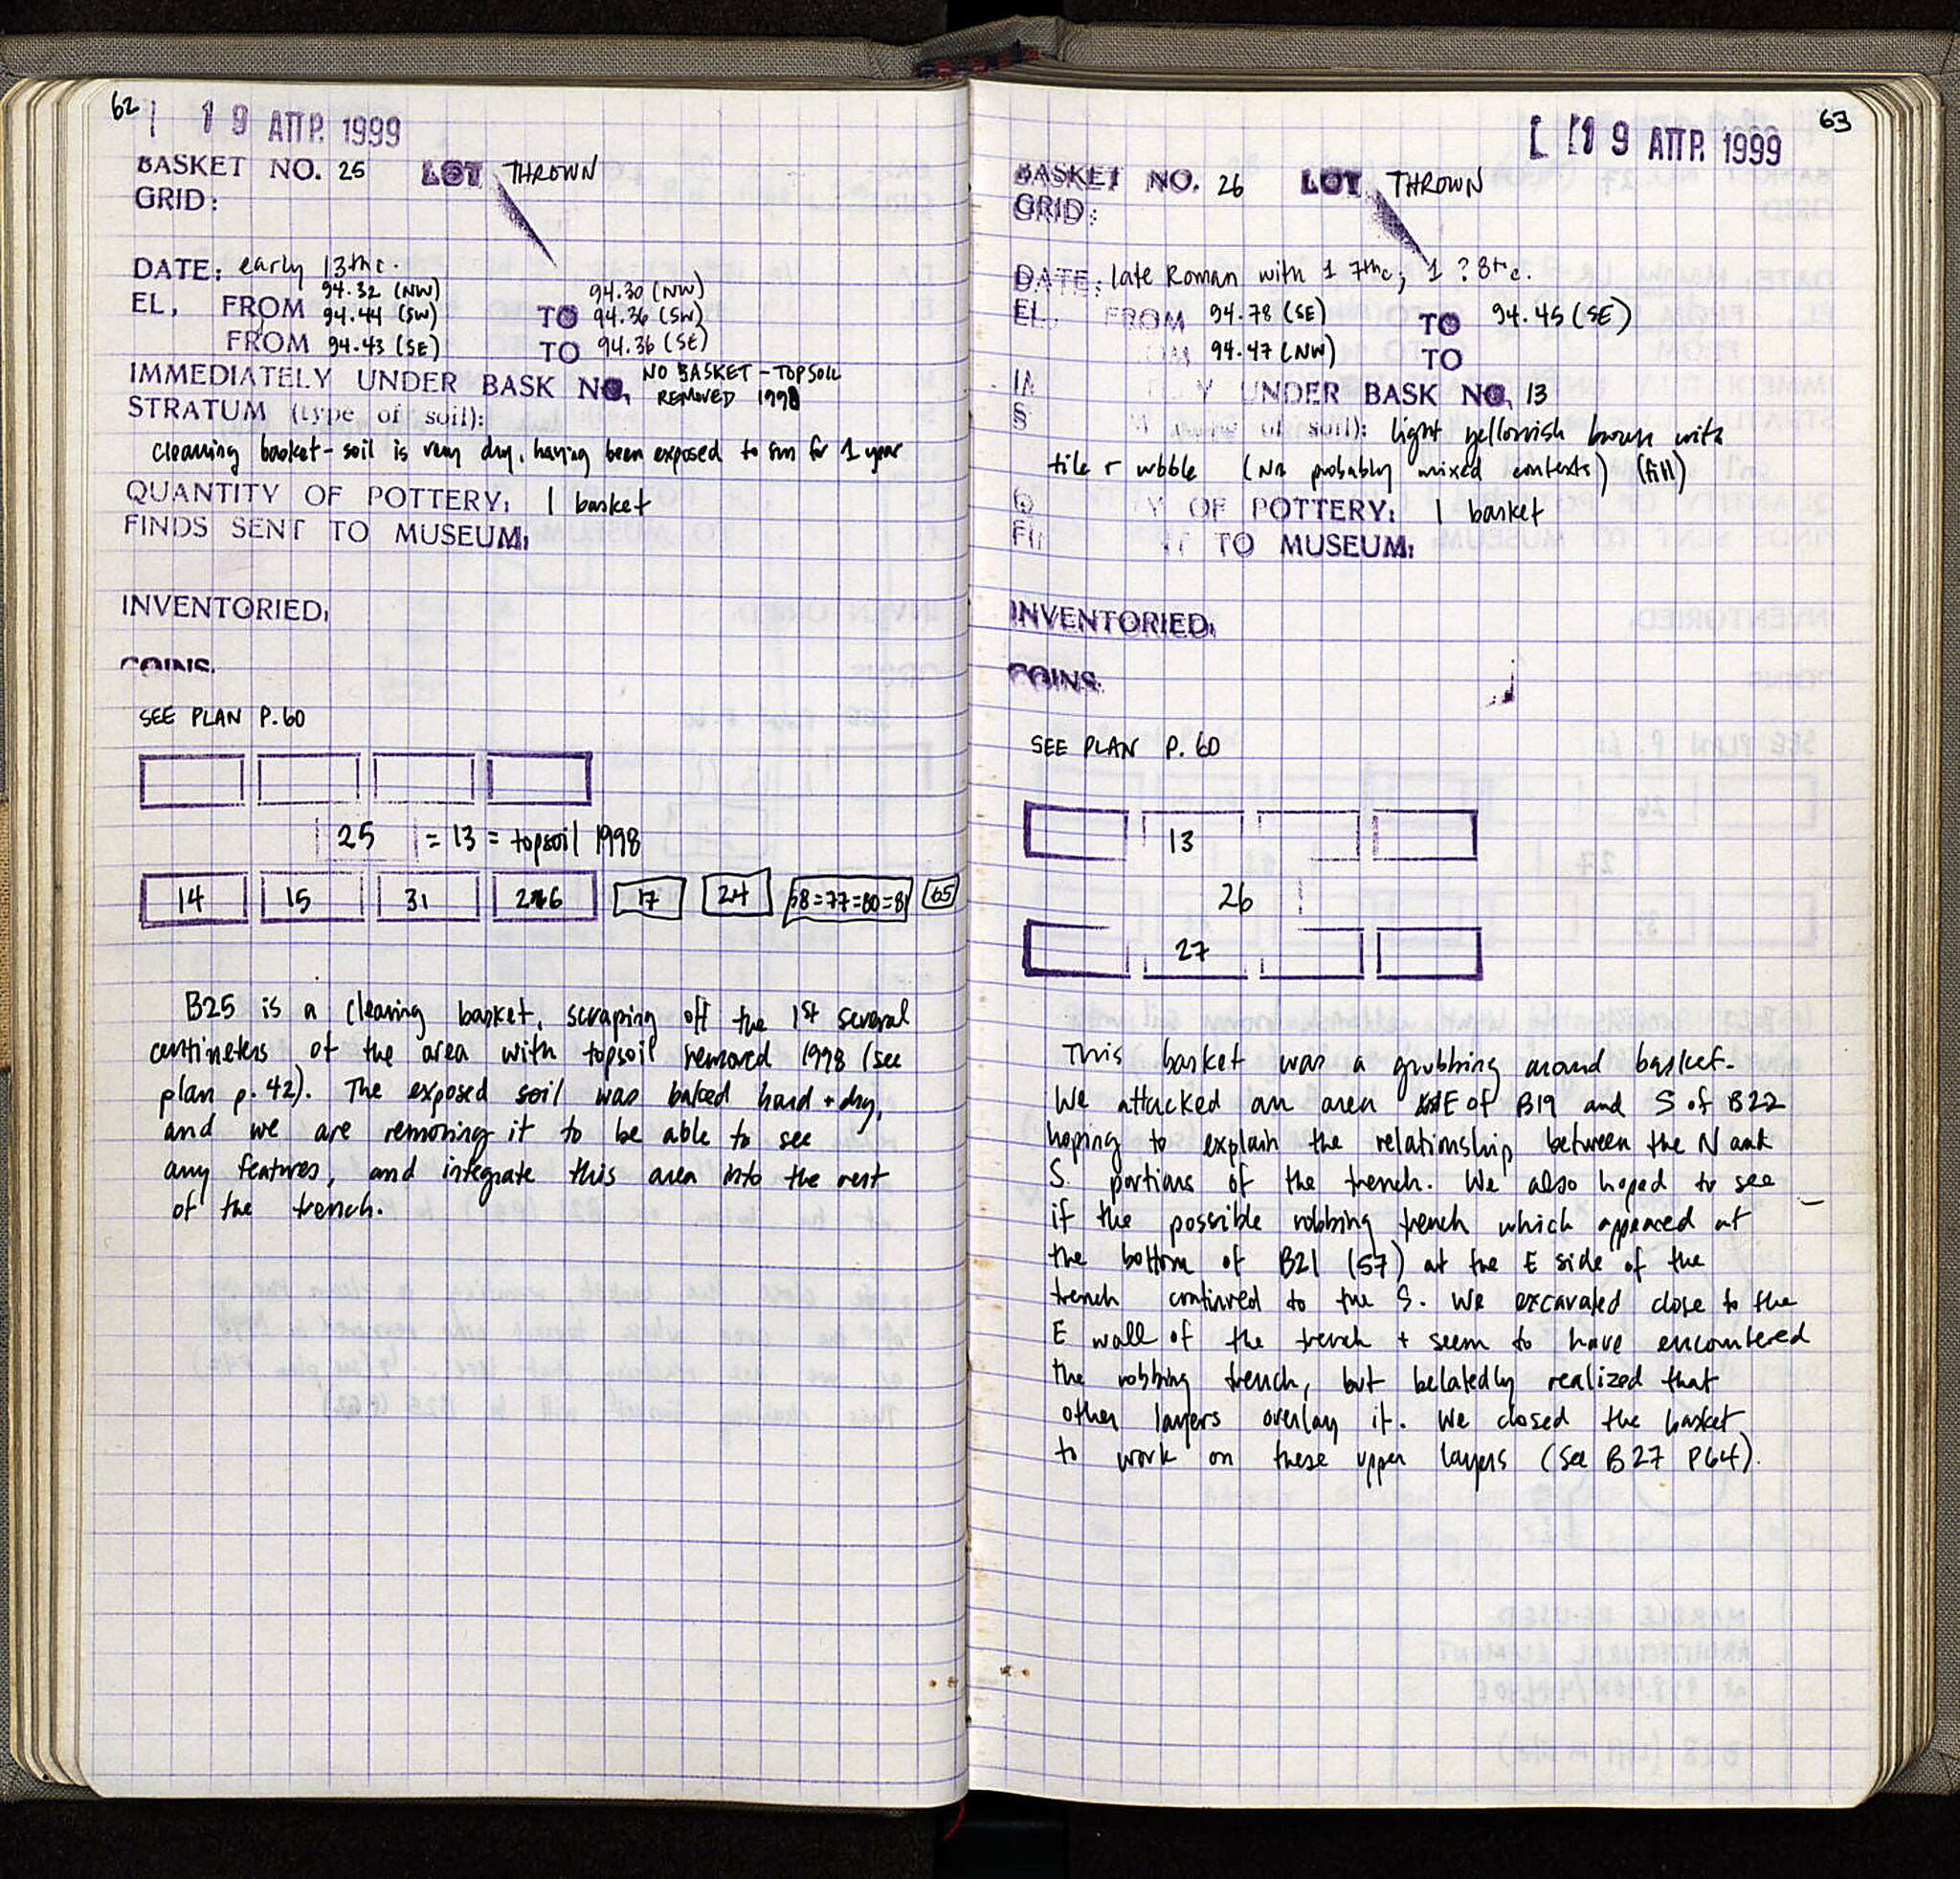 62
19 ΑΠΡ. 1999
BASKET NO. 25 LOT THROWN
GRID:
DATE: early 13th c.
94.32 (NW) 94.30 (NW)
EL. FROM 94.44 (SW) TO 94.36 (SW)
FROM 94.43 (SE) TO 94.36 (SE)
IMMEDIATELY UNDER BASK NO. NO BASKET - TOPSOIL
REMOVED 1998
STRATUM (type of soil):
cleaning basket - soil is very dry, having been exposed to sun for 1 year
QUANTITY OF POTTERY: 1 basket
FINDS SENT TO MUSEUM:
INVENTORIED:
COINS.
SEE PLAN P. 60
25 = 13 = topsoil 1998
14 15 31 17 24 68=77=80=81 65
B25 is a cleaning basket, scraping off the 1st several
centimeters of the area with topsoil removed 1998 (see
plan p. 42). The exposed soil was baked hard + dry,
and we are removing it to be able to see
any features, and integrate this area into the rest
of the trench.
63
19 ΑΠΡ. 1999
BASKET NO. 26 LOT THROWN
GRID:
DATE: late Roman with 1 7th c; 1 ? 8th c.
EL. FROM 94.78 (SE) TO 94.45 (SE)
OM 94.47 (NW) TO
Y UNDER BASK NO. 13
of soil): light yellowish brown with
tile + rubble (NB probably mixed contexts) (fill)
Y OF POTTERY: 1 basket
TO MUSEUM:
INVENTORIED:
COINS.
SEE PLAN P. 60
13
26
27
This basket was a grubbing around basket.
We attacked an area E of B19 and S of B22
hoping to explain the relationship between the N and
S. portions of the trench. We also hoped to see
if the possible robbing trench which appeared at
the bottom of B21 (57) at the E side of the
trench continued to the S. We excavated close to the
E wall of the trench + seem to have encountered
the robbing trench, but belatedly realized that
other layers overlay it. We closed the basket
to work on these upper layers (see B27 P64).